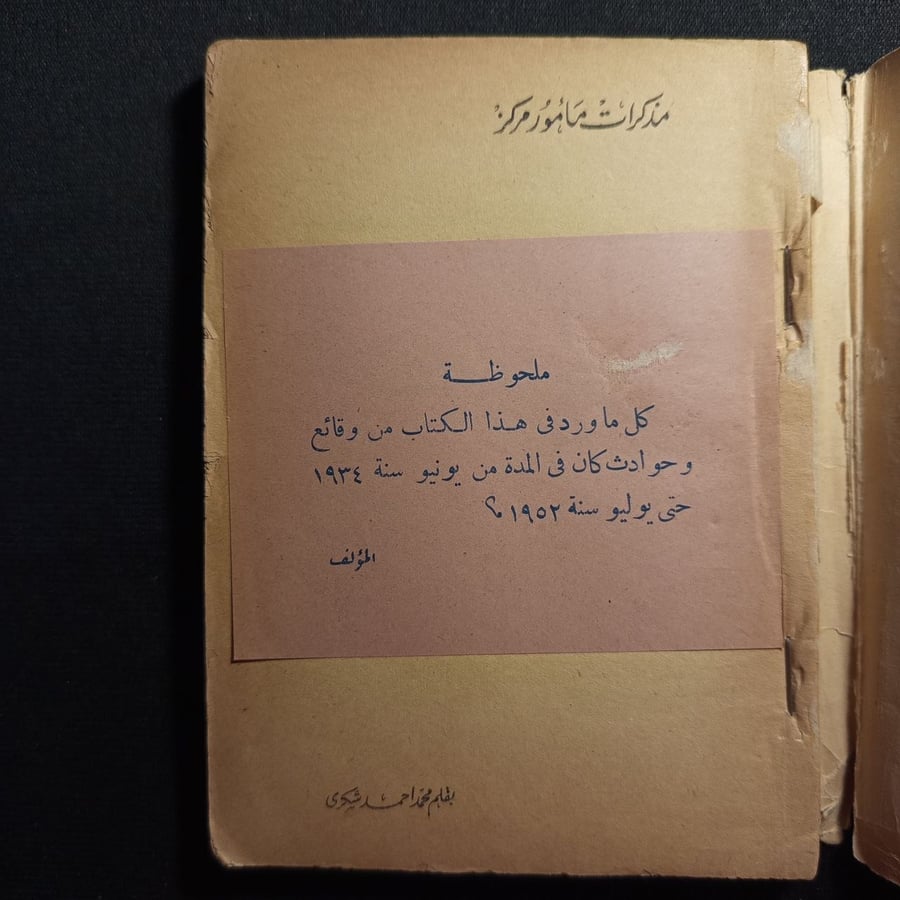 مذكرات مأمور مركز
ملحوظة
كل ما ورد فى هذا الكتاب من وقائع
وحوادث كان فى المدة من يونيو سنة ١٩٣٤
حتى يوليو سنة ١٩٥٢ م؟
المؤلف
بقلم محمد احمد شكرى